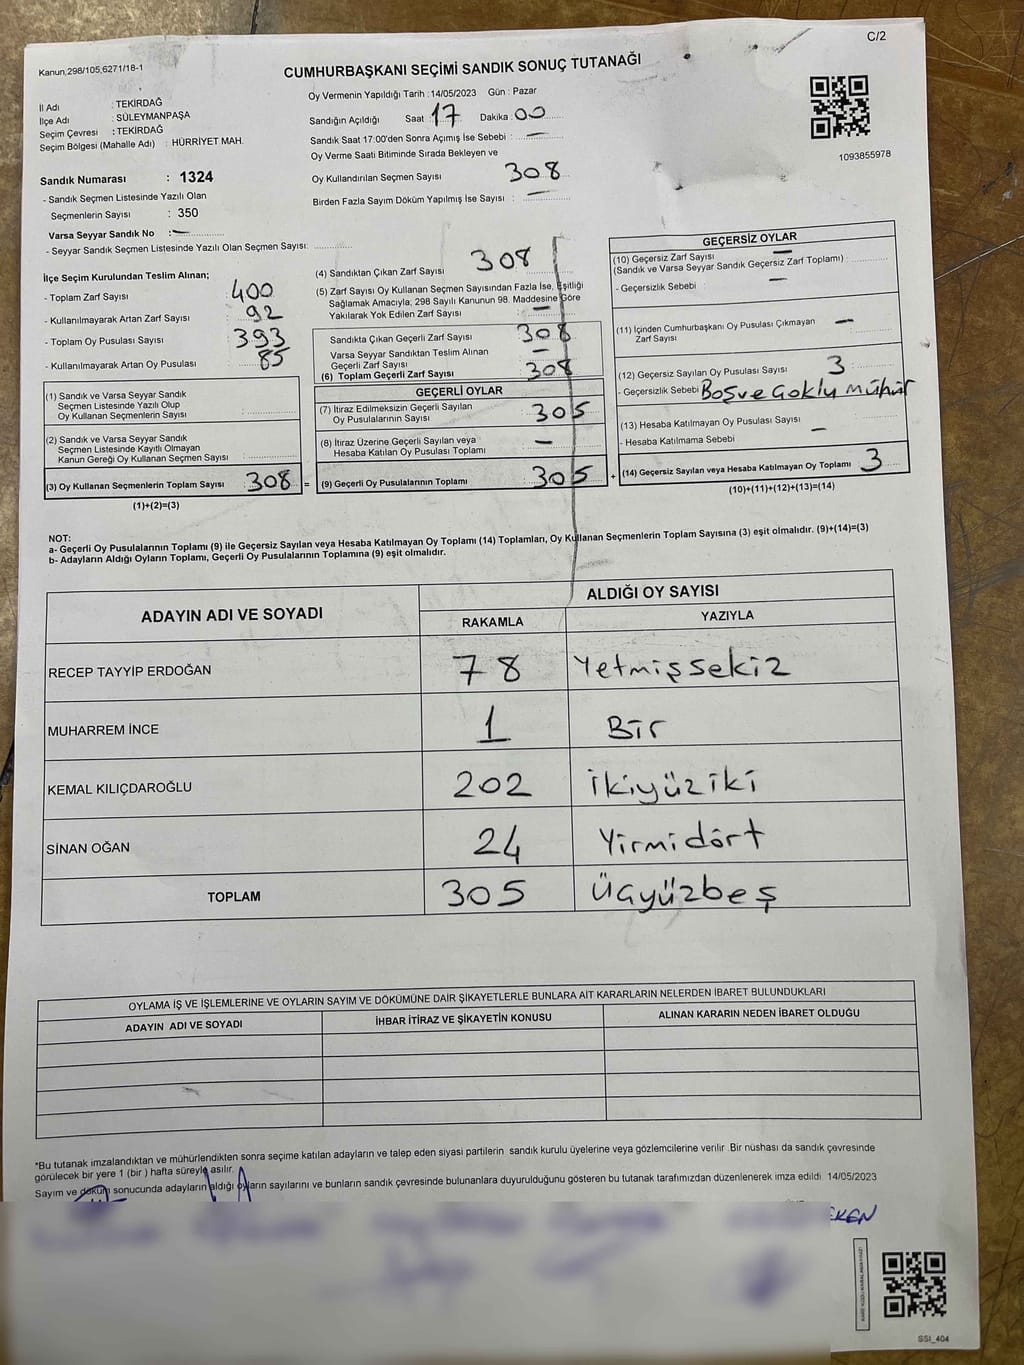 C/2
Kanun,298/105,6271/18-1
CUMHURBAŞKANI SEÇİMİ SANDIK SONUÇ TUTANAĞI
İl Adı : TEKİRDAĞ
İlçe Adı : SÜLEYMANPAŞA
Seçim Çevresi : TEKİRDAĞ
Seçim Bölgesi (Mahalle Adı) : HÜRRİYET MAH.
Sandık Numarası : 1324
- Sandık Seçmen Listesinde Yazılı Olan
Seçmenlerin Sayısı : 350
Varsa Seyyar Sandık No : —
- Seyyar Sandık Seçmen Listesinde Yazılı Olan Seçmen Sayısı:
Oy Vermenin Yapıldığı Tarih : 14/05/2023 Gün : Pazar
Sandığın Açıldığı Saat 17 Dakika 00
Sandık Saat 17:00'den Sonra Açımış İse Sebebi : —
Oy Verme Saati Bitiminde Sırada Bekleyen ve
Oy Kullandırılan Seçmen Sayısı 308
Birden Fazla Sayım Döküm Yapılmış İse Sayısı : —
1093855978
İlçe Seçim Kurulundan Teslim Alınan;
- Toplam Zarf Sayısı : 400
- Kullanılmayarak Artan Zarf Sayısı : 92
- Toplam Oy Pusulası Sayısı : 393
- Kullanılmayarak Artan Oy Pusulası : 85
(1) Sandık ve Varsa Seyyar Sandık
Seçmen Listesinde Yazılı Olup
Oy Kullanan Seçmenlerin Sayısı :
(2) Sandık ve Varsa Seyyar Sandık
Seçmen Listesinde Kayıtlı Olmayan
Kanun Gereği Oy Kullanan Seçmen Sayısı :
(3) Oy Kullanan Seçmenlerin Toplam Sayısı 308 =
(1)+(2)=(3)
(4) Sandıktan Çıkan Zarf Sayısı 308
(5) Zarf Sayısı Oy Kullanan Seçmen Sayısından Fazla İse, Eşitliği
Sağlamak Amacıyla; 298 Sayılı Kanunun 98. Maddesine Göre
Yakılarak Yok Edilen Zarf Sayısı : —
Sandıkta Çıkan Geçerli Zarf Sayısı 308
Varsa Seyyar Sandıktan Teslim Alınan
Geçerli Zarf Sayısı —
(6) Toplam Geçerli Zarf Sayısı 308
GEÇERLİ OYLAR
(7) İtiraz Edilmeksizin Geçerli Sayılan
Oy Pusulalarının Sayısı : 305
(8) İtiraz Üzerine Geçerli Sayılan veya
Hesaba Katılan Oy Pusulası Toplamı —
(9) Geçerli Oy Pusulalarının Toplamı 305 +
GEÇERSİZ OYLAR
(10) Geçersiz Zarf Sayısı —
(Sandık ve Varsa Seyyar Sandık Geçersiz Zarf Toplamı) :
- Geçersizlik Sebebi : —
(11) İçinden Cumhurbaşkanı Oy Pusulası Çıkmayan
Zarf Sayısı —
(12) Geçersiz Sayılan Oy Pusulası Sayısı : 3
- Geçersizlik Sebebi Boş ve Çoklu Mühür
(13) Hesaba Katılmayan Oy Pusulası Sayısı :
- Hesaba Katılmama Sebebi —
(14) Geçersiz Sayılan veya Hesaba Katılmayan Oy Toplamı 3
(10)+(11)+(12)+(13)=(14)
NOT:
a- Geçerli Oy Pusulalarının Toplamı (9) ile Geçersiz Sayılan veya Hesaba Katılmayan Oy Toplamı (14) Toplamları, Oy Kullanan Seçmenlerin Toplam Sayısına (3) eşit olmalıdır. (9)+(14)=(3)
b- Adayların Aldığı Oyların Toplamı, Geçerli Oy Pusulalarının Toplamına (9) eşit olmalıdır.
ADAYIN ADI VE SOYADI
ALDIĞI OY SAYISI
RAKAMLA YAZIYLA
RECEP TAYYİP ERDOĞAN 78 Yetmişsekiz
MUHARREM İNCE 1 Bir
KEMAL KILIÇDAROĞLU 202 İkiyüziki
SİNAN OĞAN 24 Yirmidört
TOPLAM 305 Üçyüzbeş
OYLAMA İŞ VE İŞLEMLERİNE VE OYLARIN SAYIM VE DÖKÜMÜNE DAİR ŞİKAYETLERLE BUNLARA AİT KARARLARIN NELERDEN İBARET BULUNDUKLARI
ADAYIN ADI VE SOYADI İHBAR İTİRAZ VE ŞİKAYETİN KONUSU ALINAN KARARIN NEDEN İBARET OLDUĞU
*Bu tutanak imzalandıktan ve mühürlendikten sonra seçime katılan adayların ve talep eden siyasi partilerin sandık kurulu üyelerine veya gözlemcilerine verilir. Bir nüshası da sandık çevresinde
görülecek bir yere 1 (bir) hafta süreyle asılır.
Sayım ve döküm sonucunda adayların aldığı oyların sayılarını ve bunların sandık çevresinde bulunanlara duyurulduğunu gösteren bu tutanak tarafımızdan düzenlenerek imza edildi. 14/05/2023
EKEN
SSI_404